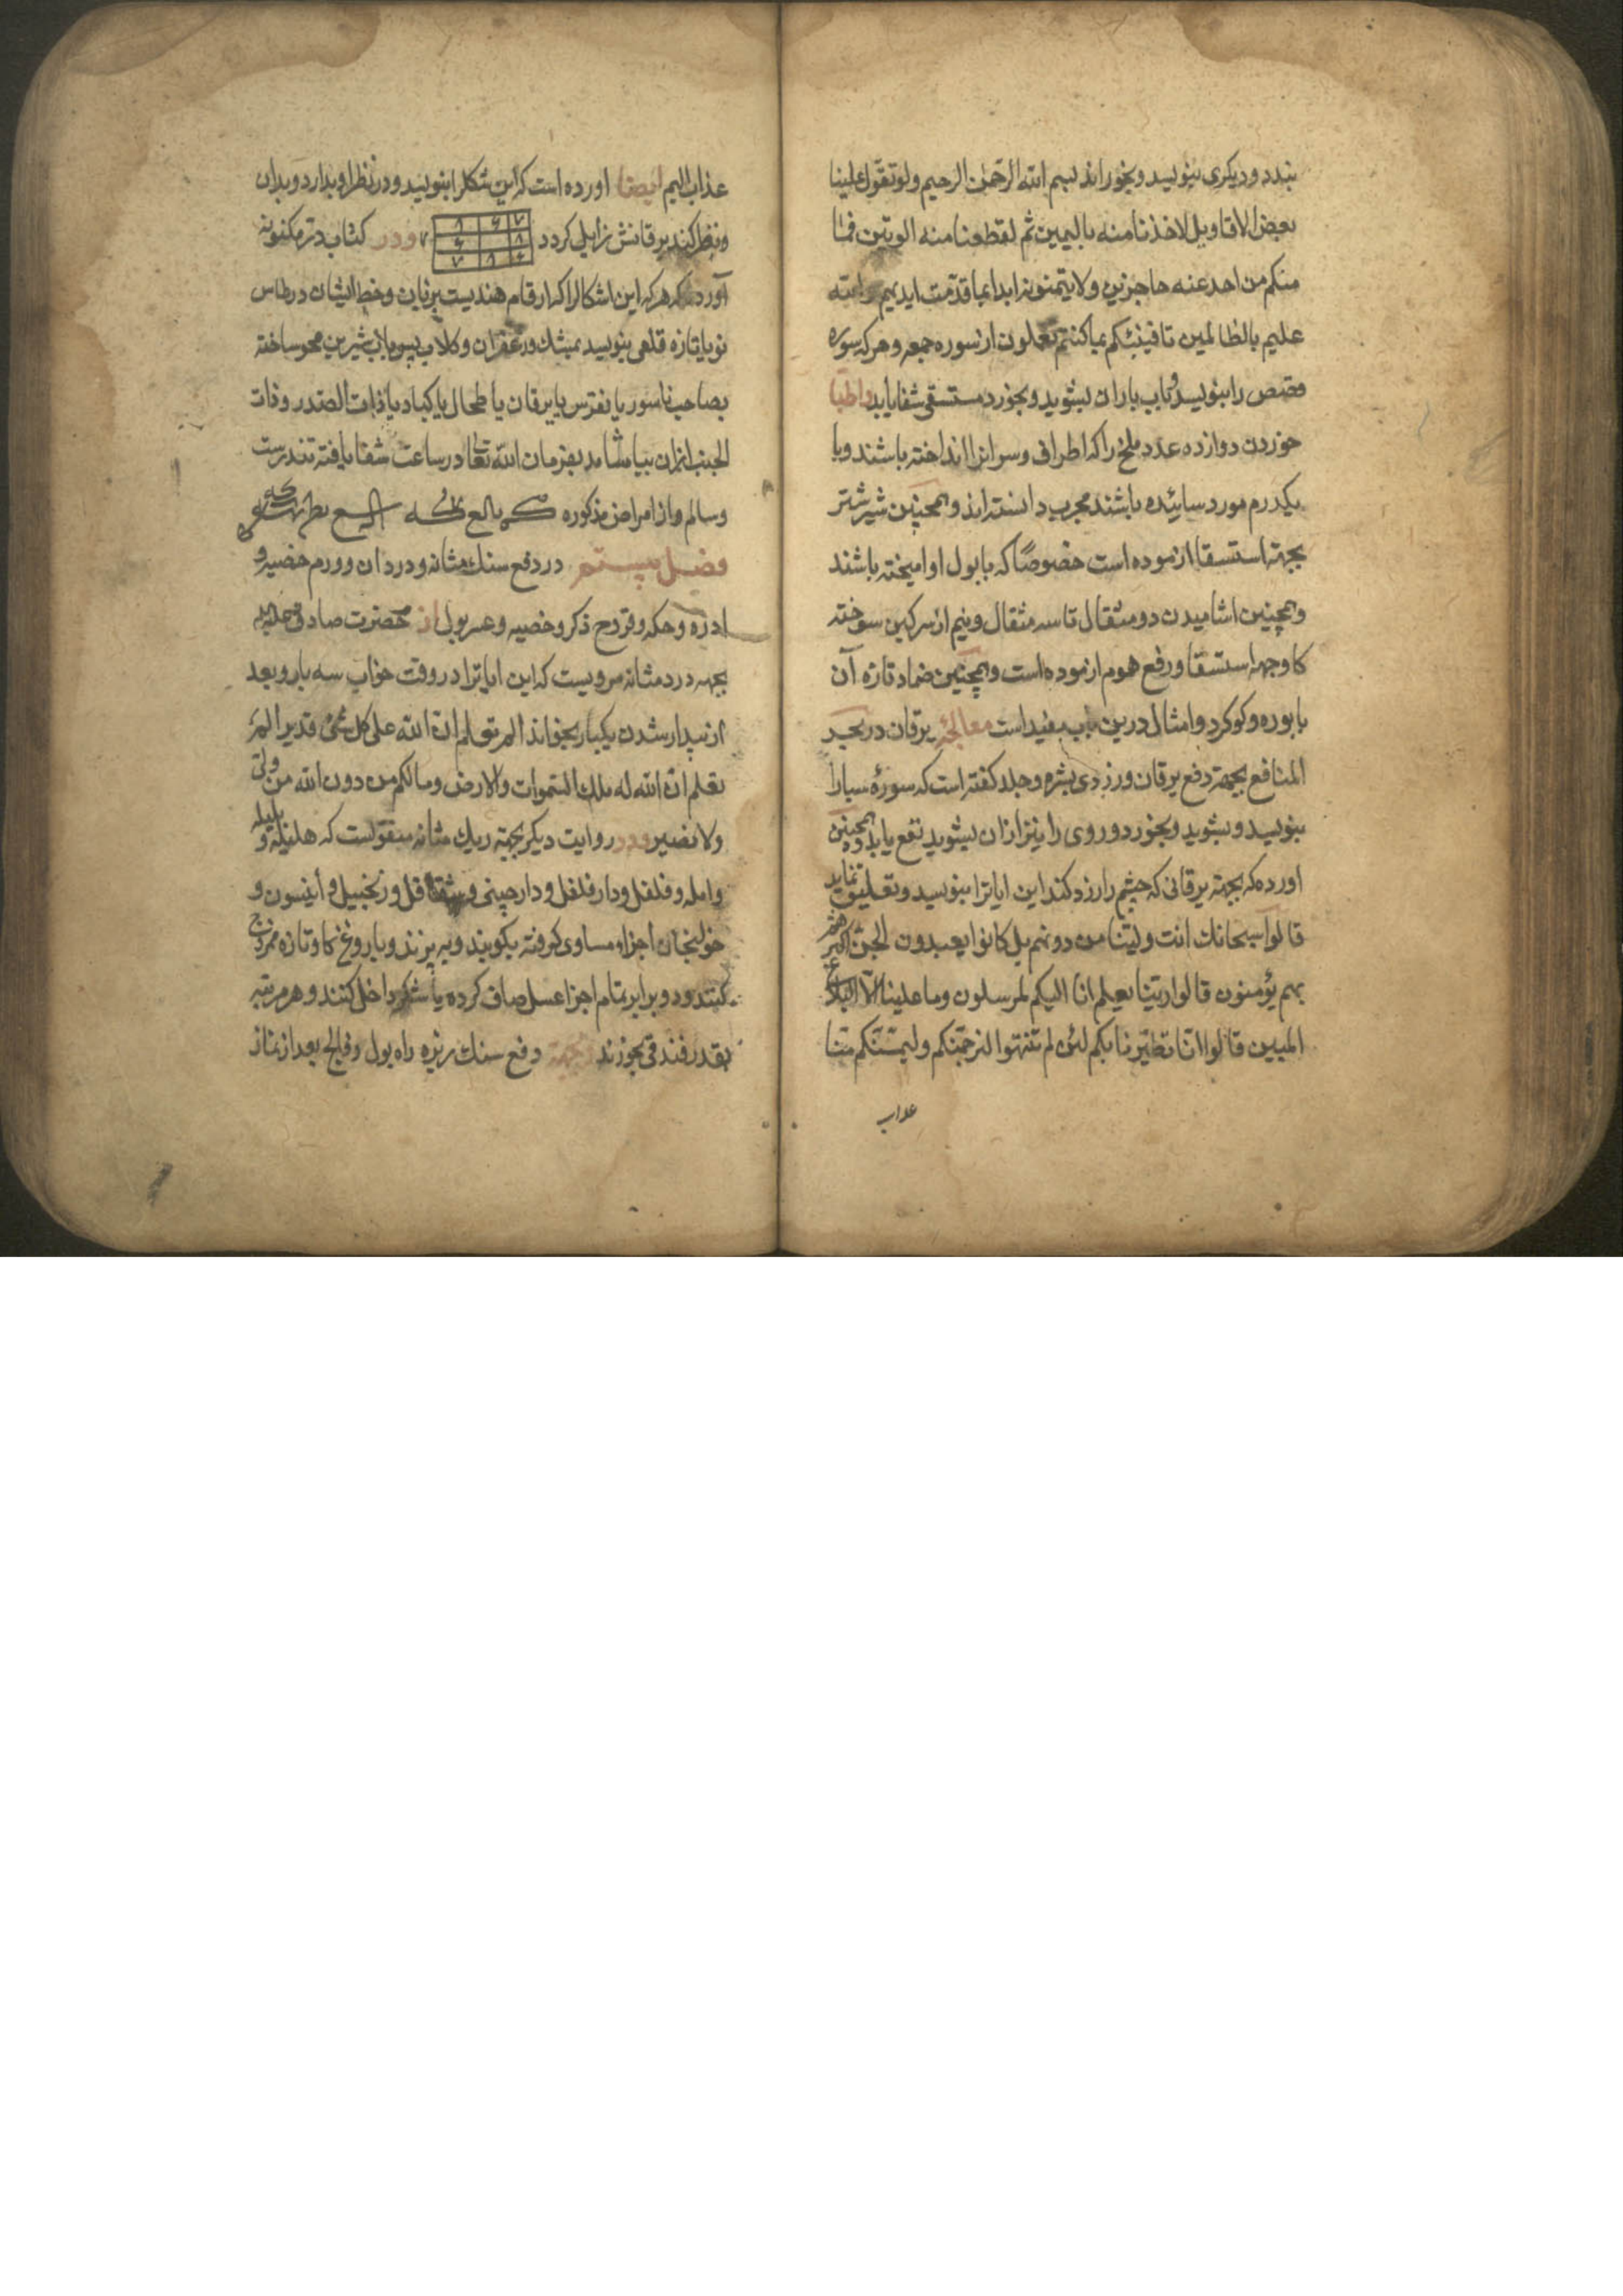 بندد و دیکری بنویسد و بخوراند بسم الله الرحمن الرحیم ولو تقول علینا
بعض الاقاویل لاخذنا منه بالیمین ثم لقطعنا منه الوتین فما
منکم من احد عنه حاجزین ولا یتمنونه ابدا بما قدمت ایدیهم والله
علیم بالظالمین تا فینبئکم بما کنتم تعملون از سوره جمعه و هر که سوره
قصص را بنویسد و باب باران بشوید و بخورد مستسقی شفا یابد و اطبا
خوردن دوازده عدد ملخ را که اطراف و سر انرا انداخته باشند و با
یکدرم مورد سائیده باشند مجرب دانسته اند و همچنین شیر شتر
بجهة استسقا ازموده است خصوصًا که با بول او امیخته باشند
و همچنین اشامیدن دو مثقال تا سه مثقال و نیم از سرکین سوخته
کاو جهه استسقا و رفع هموم ازموده است و همچنین ضماد تازه آن
با بوره و کوکرد و امثال درین باب مفید است معالجه یرقان در بحر
المنافع بجهة دفع یرقان و زردی بشره و جلد کفته است که سورهٔ سبا را
بنویسد و بشوید و بخورد و روی را نیز ازان بشوید نفع یابد و همچنین
اورده که بجهة یرقانی که چشم را زرد کند این ایاترا بنویسد و تعلیق نماید
قالوا سبحانک انت ولینا من دونهم بل کانوا یعبدون الجن اکثرهم
بهم یؤمنون قالوا ربنا یعلم انا الیکم لمرسلون وما علینا الا البلاغ
المبین قالوا انا تطیرنا بکم لئن لم تنتهوا لنرجمنکم ولیمسنکم منا
عذاب
عذاب الیم ایضا اورده است که این شکلرا بنویسد و در نظر او بدارد و بدان
و نظر کند یرقانش زایل کردد و در کتاب در مکنونه
آورده که هر که این اشکالرا که ارقام هندیست بزبان و خط ایشان در طاس
نو یا تازه قلعی بنویسد بمشک و زعفران و کلاب پس باب شیرین محو ساخته
بصاحب ناسور یا نقرس یا یرقان یا طحال یا کباد یا ذات الصدر و ذات
الجنب ازان بیاشامد بفرمان الله تعالی در ساعت شفا یافته تندرست
و سالم و از امراض مذکوره
فصل بیستم در دفع سنک مثانه و درد ان و ورم خصیه و
ادره و حکه و قروح ذکر و خصیه و عسر بول از حضرت صادق علیه
بجهه درد مثانه مرویست که این ایاترا در وقت خواب سه بار و بعد
از بیدار شدن یکبار بخواند الم تعلم ان الله علی کل شیٔ قدیر الم
تعلم ان الله له ملک السموات والارض وما لکم من دون الله من ولی
ولا نصیر و در روایت دیکر بجهة ریک مثانه منقولست که هلیله و بلیله
و امله و فلفل و دارفلفل و دارچینی و شقاقل و زنجبیل و انیسون و
خولنجان اجزاء مساوی کرفته بکوبند و به پزند و با روغن کاو تازه ممزوج
کنند و دو برابر تمام اجزا عسل صاف کرده یا شکر داخل کنند و هر مرتبه
بقدر فندقی بخورند و جهة دفع سنک ریزه راه بول و فالج بعد از نماز